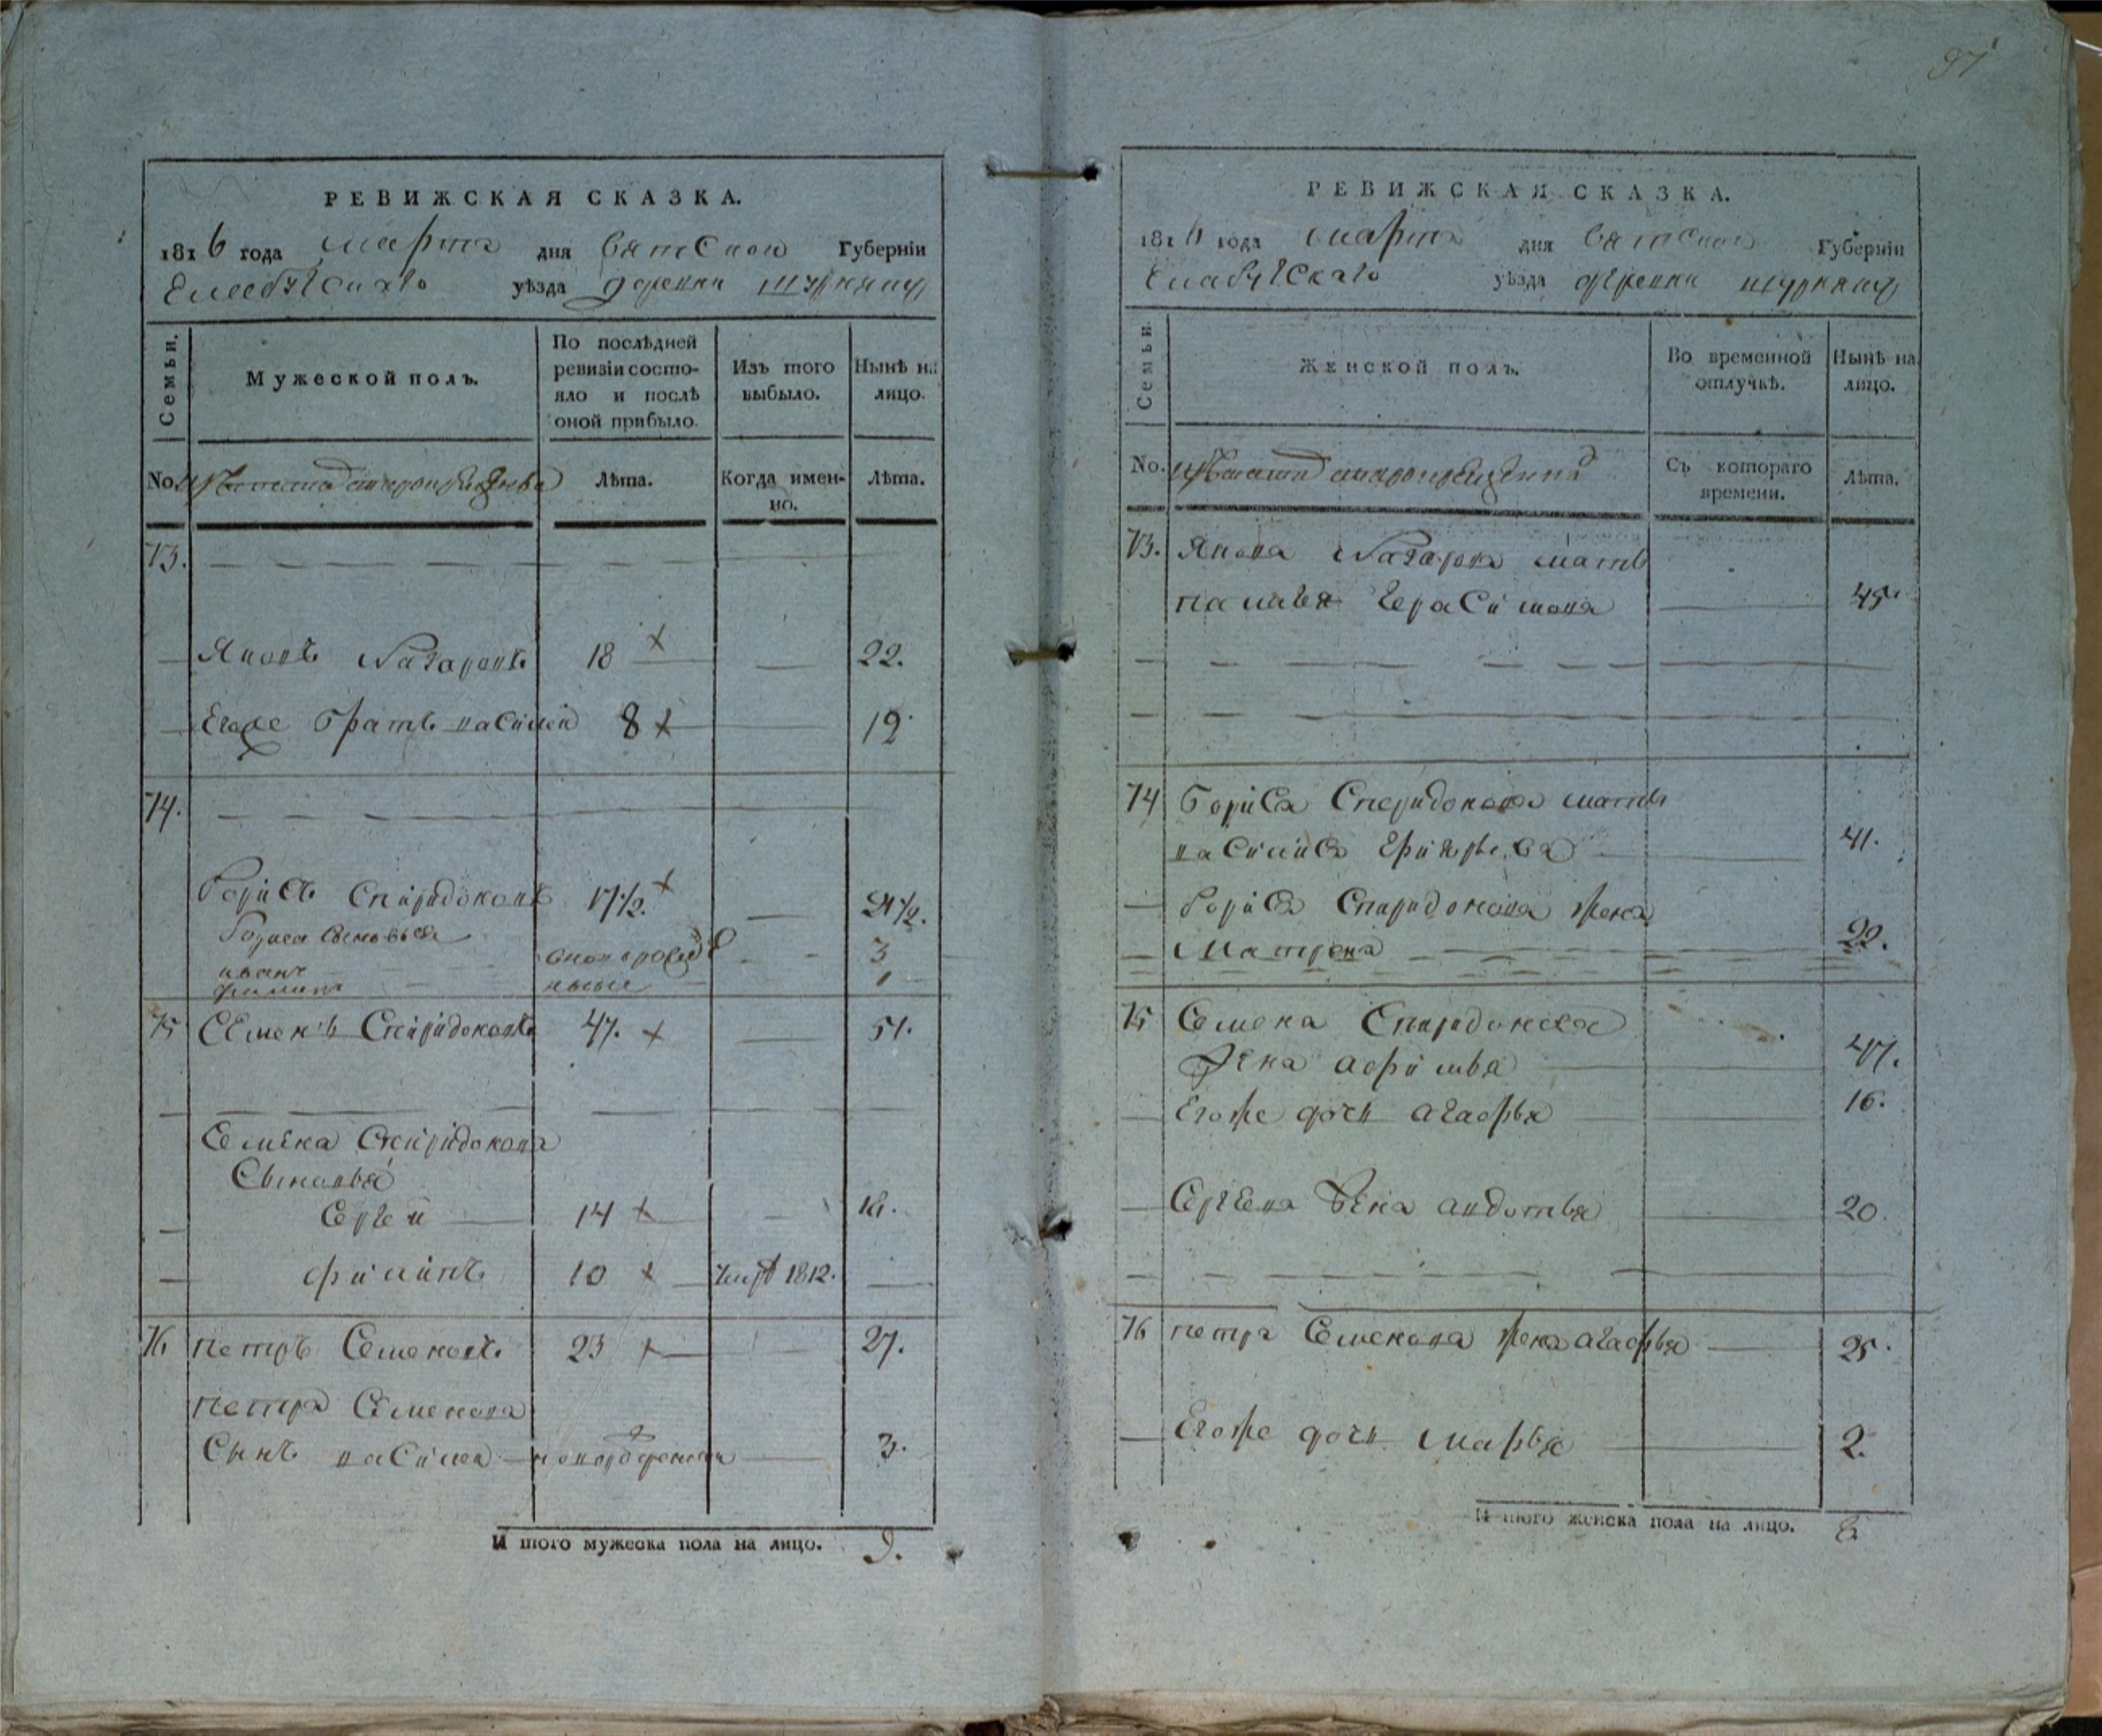 97
РЕВИЖСКАЯ СКАЗКА.
1816 года марта дня вятской Губерніи
Елабугскаго уѣзда деревни
Семьи.
Мужеской полъ.
По послѣдней ревизіи состояло и послѣ оной прибыло.
Изъ того выбыло.
Нынѣ на лицо.
No.
Лѣта.
Когда именно.
Лѣта.
73.
Яковъ Назаровъ 18 22.
Егоже братъ василей 8 12
74.
Борисъ Спиридоновъ 17 1/2. 21 1/2.
Бориса Сыновья
иванъ 3
филипъ 1
75 Семенъ Спиридоновъ 47. 51.
Семена Спиридонова
Сыновья
Сергей 14 18.
филипъ 10 1812.
76 петръ Семеновъ 23 27.
петра Семенова
Сынъ василей новорожденной 3.
И того мужеска пола на лицо. 9.
РЕВИЖСКАЯ СКАЗКА.
1816 года марта дня вятской Губерніи
Елабугскаго уѣзда деревни
Семьи.
Женской полъ.
Во временной отлучкѣ.
Нынѣ на лицо.
No.
Съ котораго времени.
Лѣта.
73. Якова Назарова мать
Герасимова 45
74 Бориса Спиридонова мать
василиса 41.
Бориса Спиридонова жена
Матрена 22.
75 Семена Спиридонова
жена афимья 47.
Егоже дочь агафья 16.
Сергея жена авдотья 20
76 петра Семенова жена агафья 25
Егоже дочь марья 2.
И того женска пола на лицо. 8